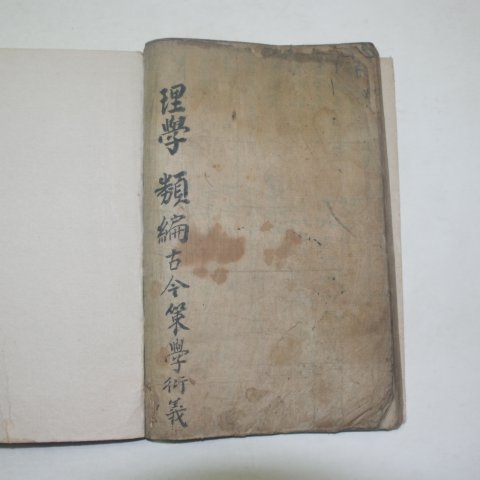 理學 類編古今策學衍義